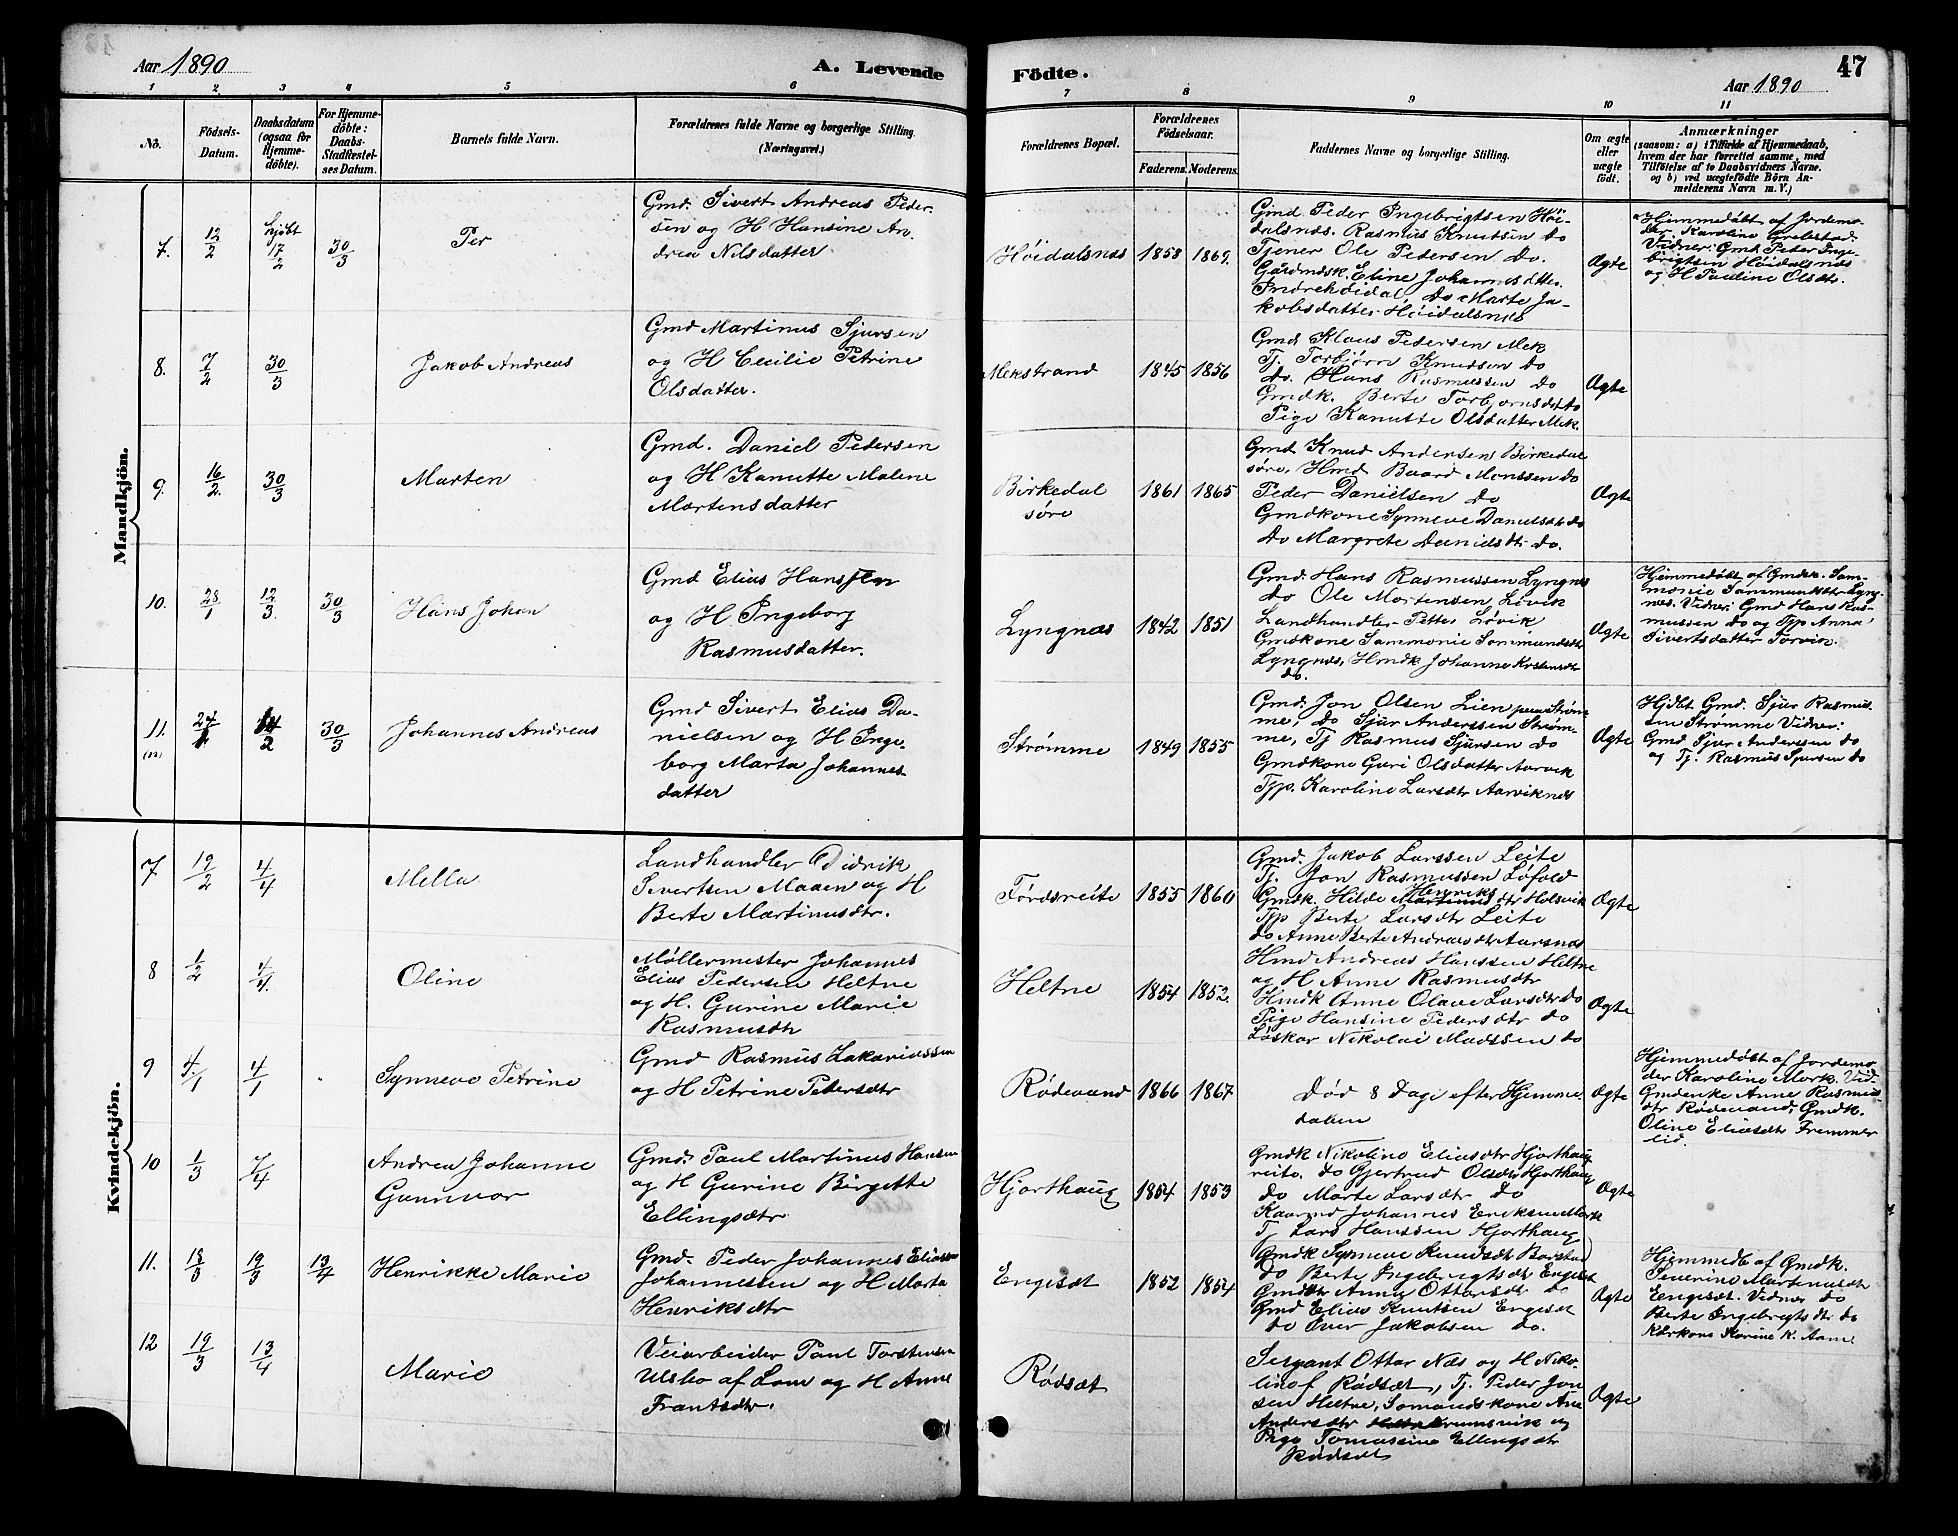 Aar 1890
A. Levende
Födte.
Aar 1890
47
1 2 3 4 5 6 7 8 9 10 11
No.
Födsels-
Datum.
Daabsdatum
(ogsaa for
Hjemme-
döbte).
For Hjemme-
döbte:
Daabs-
Stadfæstel-
ses Datum.
Barnets fulde Navn.
Forældrenes fulde Navne og borgerlige Stilling.
(Næringsvei.)
Forældrenes Bopæl.
Forældrenes
Födselsaar.
Faderens. Moderens.
Faddernes Navne og borgerlige Stilling.
Om ægte
eller
uægte
födt.
Anmærkninger
(saasom: a) i Tilfælde af Hjemmedaab,
hvem der har forrettet samme, med
Tilföielse af to Daabsvidners Navne.
og b) ved uægtefödte Börn An-
melderens Navn m. V.)
Mandkjön.
7.
12/2
hjdbt
17/2
30/3
Per
Gmd. Sivert Andreas Peder-
sen og H Hansine An-
drea Nilsdatter
Höidalsnæs
1858
1869.
Gmd Peder Ingebrigtsen Höi-
dalsnæs. Rasmus Knudsen do
Tjener Ole Pedersen do.
Gårdmdsk. Eline Johannesdtter
Indrehöidal do Marte Ja-
kobsdatter Höidalsnæs
Ægte
Hjemmedöbt af Jordemo-
der. Karoline Grebstad.
Vidner: Gmd Peder Inge-
brigtsen Höidalsnæs
og H Pauline Olsdtr.
8.
7/2
30/3
Jakob Andreas
Gmd Martinus Sjursen
og H Cecilie Petrine
Olsdatter.
Mekstrand
1845
1856
Gmd Klaus Pedersen Mek
Tj. Torbjørn Knudsen do
do. Hans Rasmussen do
Gmdk. Berte Torbjørnsdt do
Pige Kanutte Olsdatter Mek.
Ægte
9.
16/2.
30/3
Marten
Gmd. Daniel Pedersen
og H Kanutte Malene
Martensdatter
Birkedal
søre
1861
1865
Gmd Knud Andersen Birkedal
søre, Hmd Baard Monssen do
Peder Danielsen do
Gmdkone Synneve Danielsdt do
do Margrete Danielsdtr do.
Ægte
10.
28/1
12/3
30/3
Hans Johan
Gmd Elias Hanssen
og H Ingeborg
Rasmusdatter.
Lyngnæs
1842
1851
Gmd. Hans Rasmussen Lyngnæs
do Ole Mortensen Løvik
Landhandler Petter Løvik
Gmdkone Sammonie Sammundsdtr
Lyngnæs, Hmdk Johanne Kristensdtr
do.
Ægte
Hjemmedöbt af Gmdk. Sam-
monie Sammundsdtr Lyng-
næs. Vidner: Gmd Hans Ras-
mussen do og Tjp Anna
Sivertsdatter Torvik.
11.
24/1
14/2
30/3
Johannes Andreas
Gmd Sivert Elias Da-
nielsen og H Inge-
borg Marta Johannes-
datter
Strømme
1849
1855
Gmd. Jon Olsen Lien Strøm-
me, do Sjur Anderssen Strøm-
me, Tj Rasmus Sjursen do
Gmdkone Guri Olsdatter Aarvik
Tjp. Karoline Larsdtr Aarviknes
Ægte
Hjdbt Gmd. Sjur Rasmus-
sen Strømme Vidner:
Gmd Sjur Anderssen do
og Tj. Rasmus Sjursen do
Kvindekjön.
7
19/2
4/4
Mella
Landhandler Didrik
Sivertsen Maaen og H
Berte Martinusdtr.
Førdsreite
1855
1860
Gmd. Jakob Larssen Leite
Tj. Jon Rasmussen Løfold
Henriks
Gmdk. Hilde Martinus dtr Holsvik
Tjp Berte Larsdtr Leite
do Anne Berte Andreasdtr Aarsnes
Ægte
8
1/2
4/4.
Oline
Møllermester Johannes
Elias Pedersen Heltne
og H. Gurine Marie
Rasmusdtr
Heltne
1854
1852.
Hmd Andreas Hanssen Heltne
og H Anne Rasmusdtr
Hmdk Anne Olave Larsdtr do
Pige Hansine Pedersdtr do
Løskar Nikolai Madssen do
Ægte
9
4/1
4/1
Synneve Petrine
Gmd Rasmus Zakariassen
og H Petrine Pedersdtr
Rødevand
1866
1867
Død 8 Dage efter Hjemme-
daben
Ægte
Hjemmedöbt af Jordemo-
der Karoline Mork. Vid-
Gmdenke Anne Rasmus-
dtr Rødevand, Gmdk.
Oline Eliasdtr Fremmer-
lid.
10
1/3
7/4
Andrea Johanne
Gunnvor
Gmd. Paul Martinus Hansen
og H Gurine Birgette
Ellingsdtr
Hjorthaug
1854
1853
Gmdk Nikoline Eliasdtr Hjorthaug-
reite. do Gjertrud Olsdtr Hjorthaug
do Marte Larsdtr do
Kaarmd Johannes Eriksen Mork
Tj Lars Hanssen Hjorthaug
Ægte
11.
18/3
19/3
13/4
Henrikke Marie
Gmd. Peder Johannes Elias
Johannessen og H Marta
Henriksdtr
Engesæt
1852
1854
Gmdk Synneve Knudsdt Borstad
do Berte Ingebrigtsdtr Engeset
Gmddtr Anne Ottarsdtr do
Gmd Elias Knutsen Engesæt
do Iver Jakobsen do.
Ægte
Hjemmedb af Gmdk.
Severine Martinusdtr
Engesæt. Vidner do
Berte Ingebregtsdtr do
Kårkone Karine K. Aame
12
19/3
13/4
Marie
Veiarbeider Paul Torstensen
Ulsbo af Lom og H Anne
Frantsdtr.
Rødsæt
Sersjant Ottar Næs og H Niko-
line Rødsæt, Tj. Peder Jon-
sen Heltne, Sømandskone Ane
Andersdtr og
Pige Tomassine Ellingsdtr
Rødsæt
Ægte